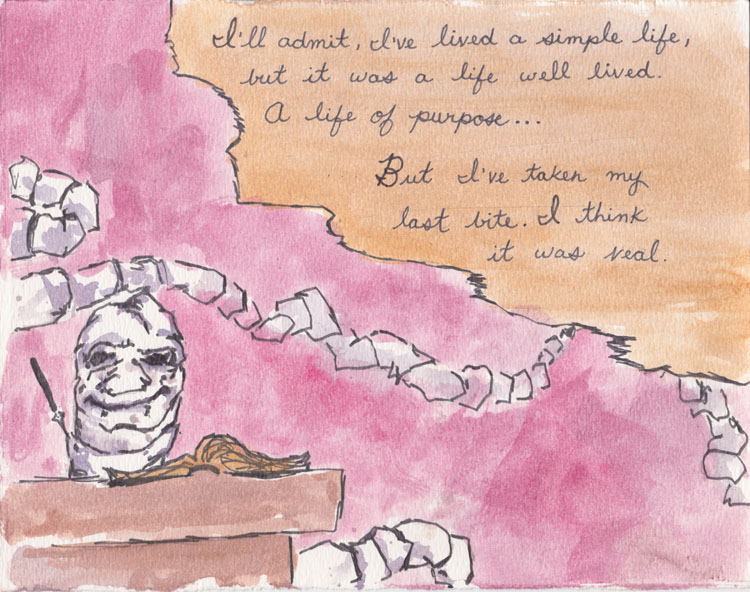 I'll admit, I've lived a simple life,
but it was a life well lived.
A life of purpose...
But I've taken my
last bite. I think
it was veal.